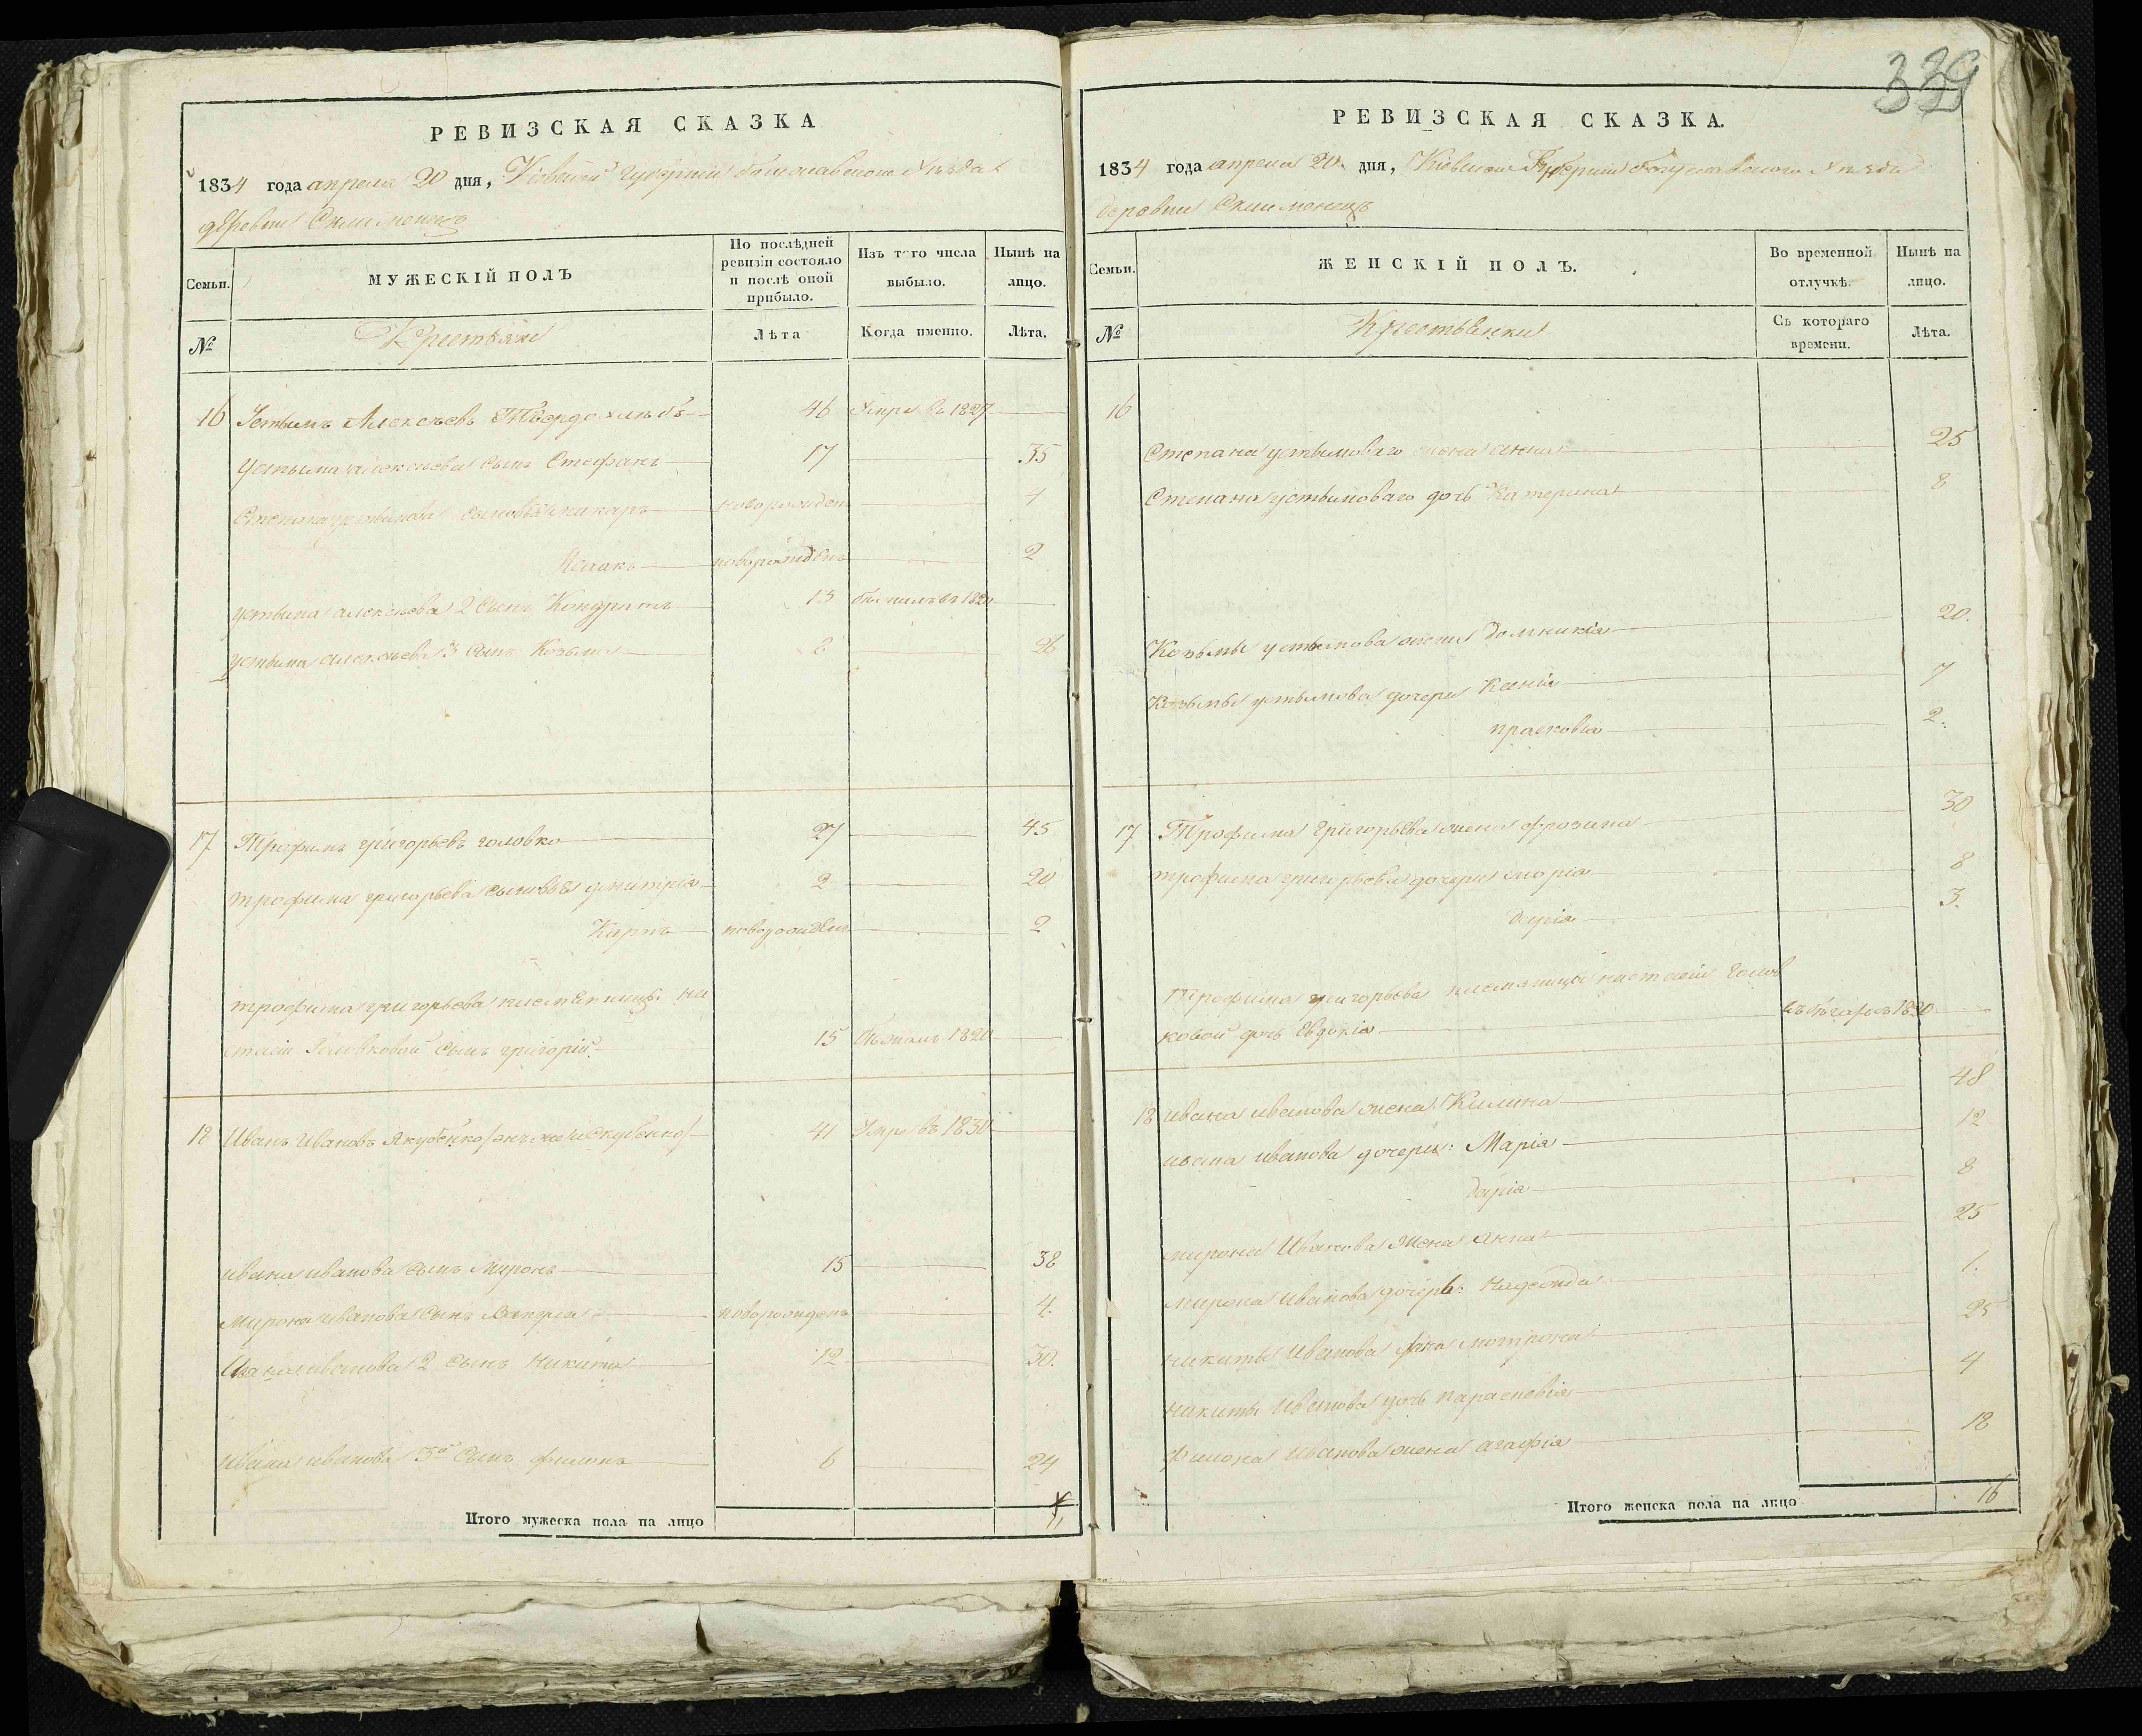 339
РЕВИЗСКАЯ СКАЗКА
1834 года апреля 20 дня, Кіевской губерніи Богуславского Уезда
деревни Склименецъ
Семьи. МУЖЕСКІЙ ПОЛЪ По послѣдней ревизіи состояло и послѣ оной прибыло. Изъ того числа выбыло. Нынѣ на лицо.
№ Крестьяне Лѣта Когда именно. Лѣта.
16 Устимъ Алексѣевъ Твердохлѣбъ 46 Умре въ 1827
Устыма алексѣева сынъ Стефанъ 17 35
Степана устимова сыновья новорожденъ 4
Исаакъ новорожденъ 2
устыма алексѣева 2 сынъ Кондратъ 13 1820
устыма алексѣева 3 сынъ Козьма 8 26
17 Трофимъ григорьевъ головко 27 45
трофима григорьева сыновья дмитрій 2 20
новорожденъ 2
трофима григорьева племянницы на
стасіи Головковой сынъ григорій 15 Бѣжалъ 1820
18 Иванъ Ивановъ Якубенко 41 Умре въ 1830
ивана иванова сынъ Миронъ 15 38
Мирона иванова сынъ новорожденъ 4.
Ивана иванова 2 сынъ Никита 12 30.
Ивана иванова 3й сынъ филонъ 6 24
Итого мужеска пола на лицо 11
РЕВИЗСКАЯ СКАЗКА.
1834 года апреля 20 дня, Кіевской Губерніи Богуславского Уезда
деревни Склименецъ
Семьи. ЖЕНСКІЙ ПОЛЪ. Во временной отлучкѣ. Нынѣ на лицо.
№ Крестьянки Съ котораго времени. Лѣта.
16
Степана устимоваго жена анна 25
Степана устимоваго дочь Катерина 8
Козьмы устимова жена домникія 20.
Козьмы устимова дочери Ксенія 7
прасковія 2.
17 Трофима Григорьева жена фрозина 30
трофима григорьева дочери марія 8
дарія 3.
Трофима григорьева племяницы настасіи Голов
ковой дочь Евдокія въ бѣгахъ съ 1820
18 ивана иванова жена Килина 48
ивана иванова дочери: Марія 12
дарія 8
мирона Иванова жена Анна 25
мирона Иванова дочерь: Надежда 1.
никиты Иванова жена мотрона 25
никиты Иванова дочь параскевія 4
Филона Иванова жена агафія 18
Итого женска пола на лицо 16